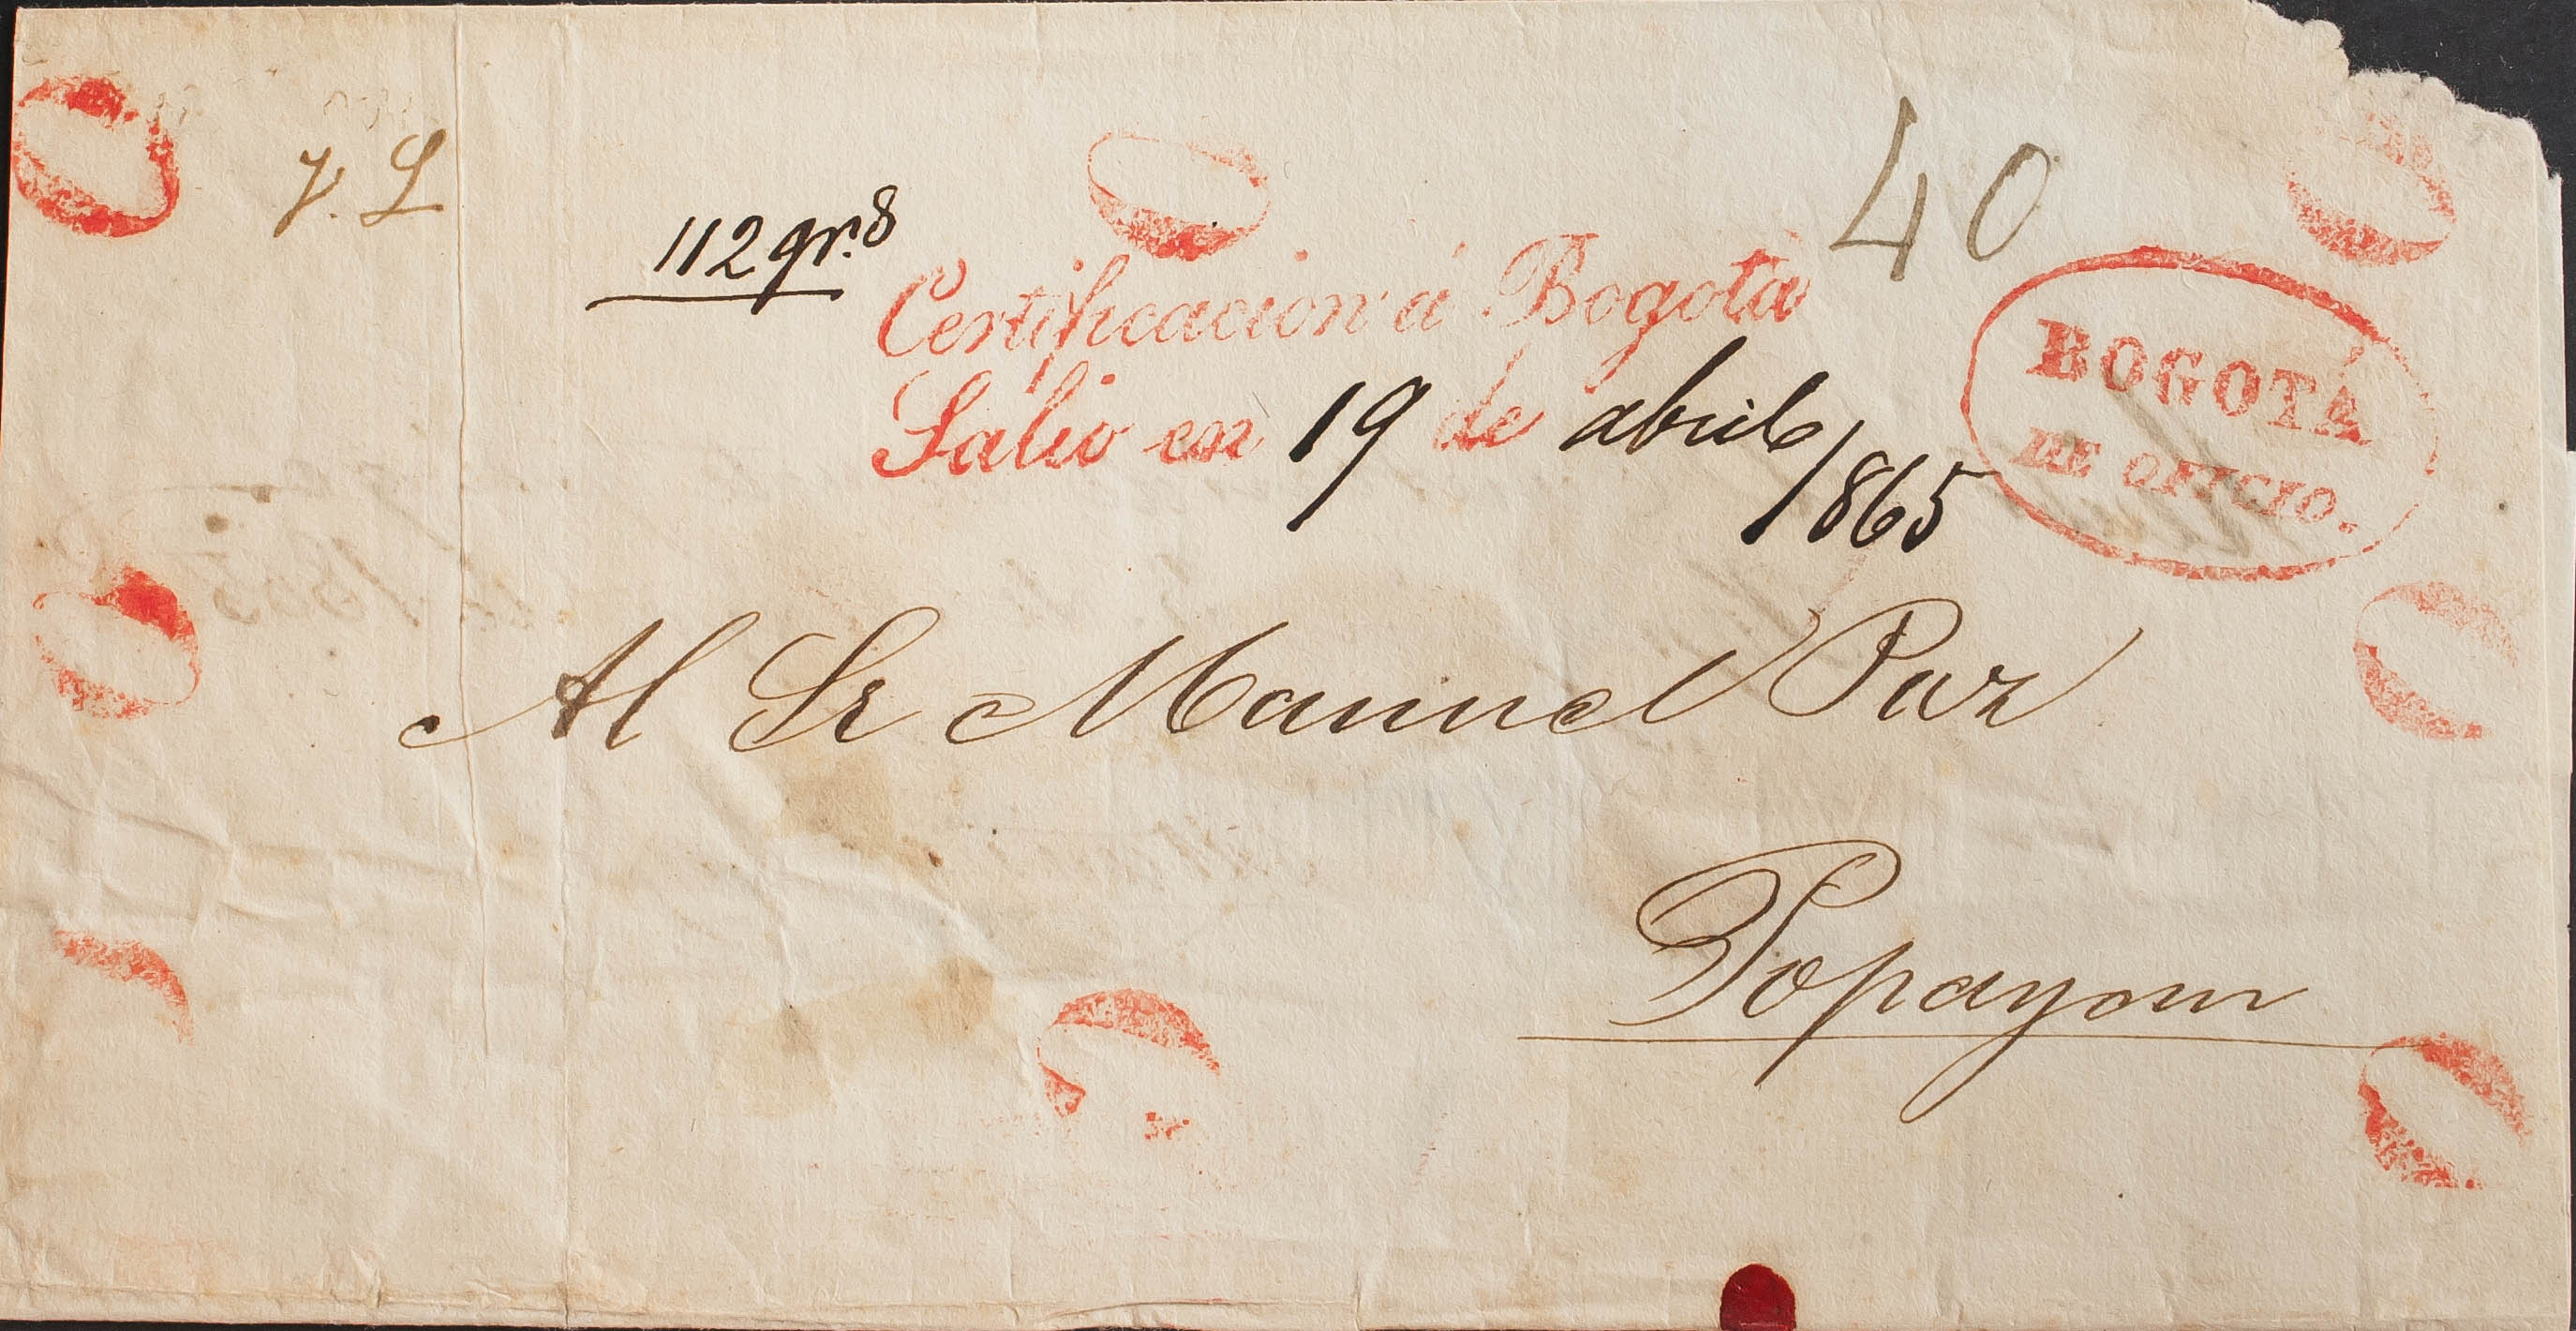 40
112 gr.s
Certificacion á Bogotá
Salio en 19 de abril
1865
BOGOTÁ
DE OFICIO.
Al Sr Manuel Paz
Popayan